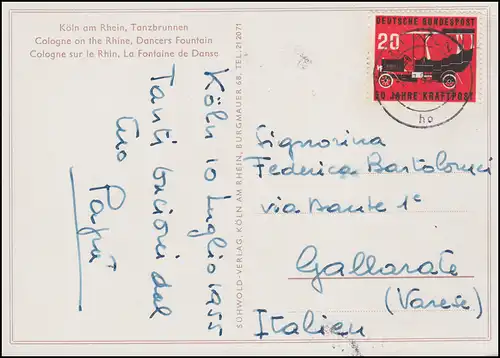 Köln am Rhein, Tanzbrunnen
Cologne on the Rhine, Dancers Fountain
Cologne sur le Rhin, La Fontaine de Danse
Köln 10 Luglio 1955
Tanti bacioni dal
tuo Papà
SCHWOLD-VERLAG, KÖLN AM RHEIN, BURGMAUER 68, TEL. 212071
DEUTSCHE BUNDESPOST
20
50 JAHRE KRAFTPOST
ho
Signorina
Federica Bartolomei
via Dante 1c
Gallarate
(Varese)
Italien